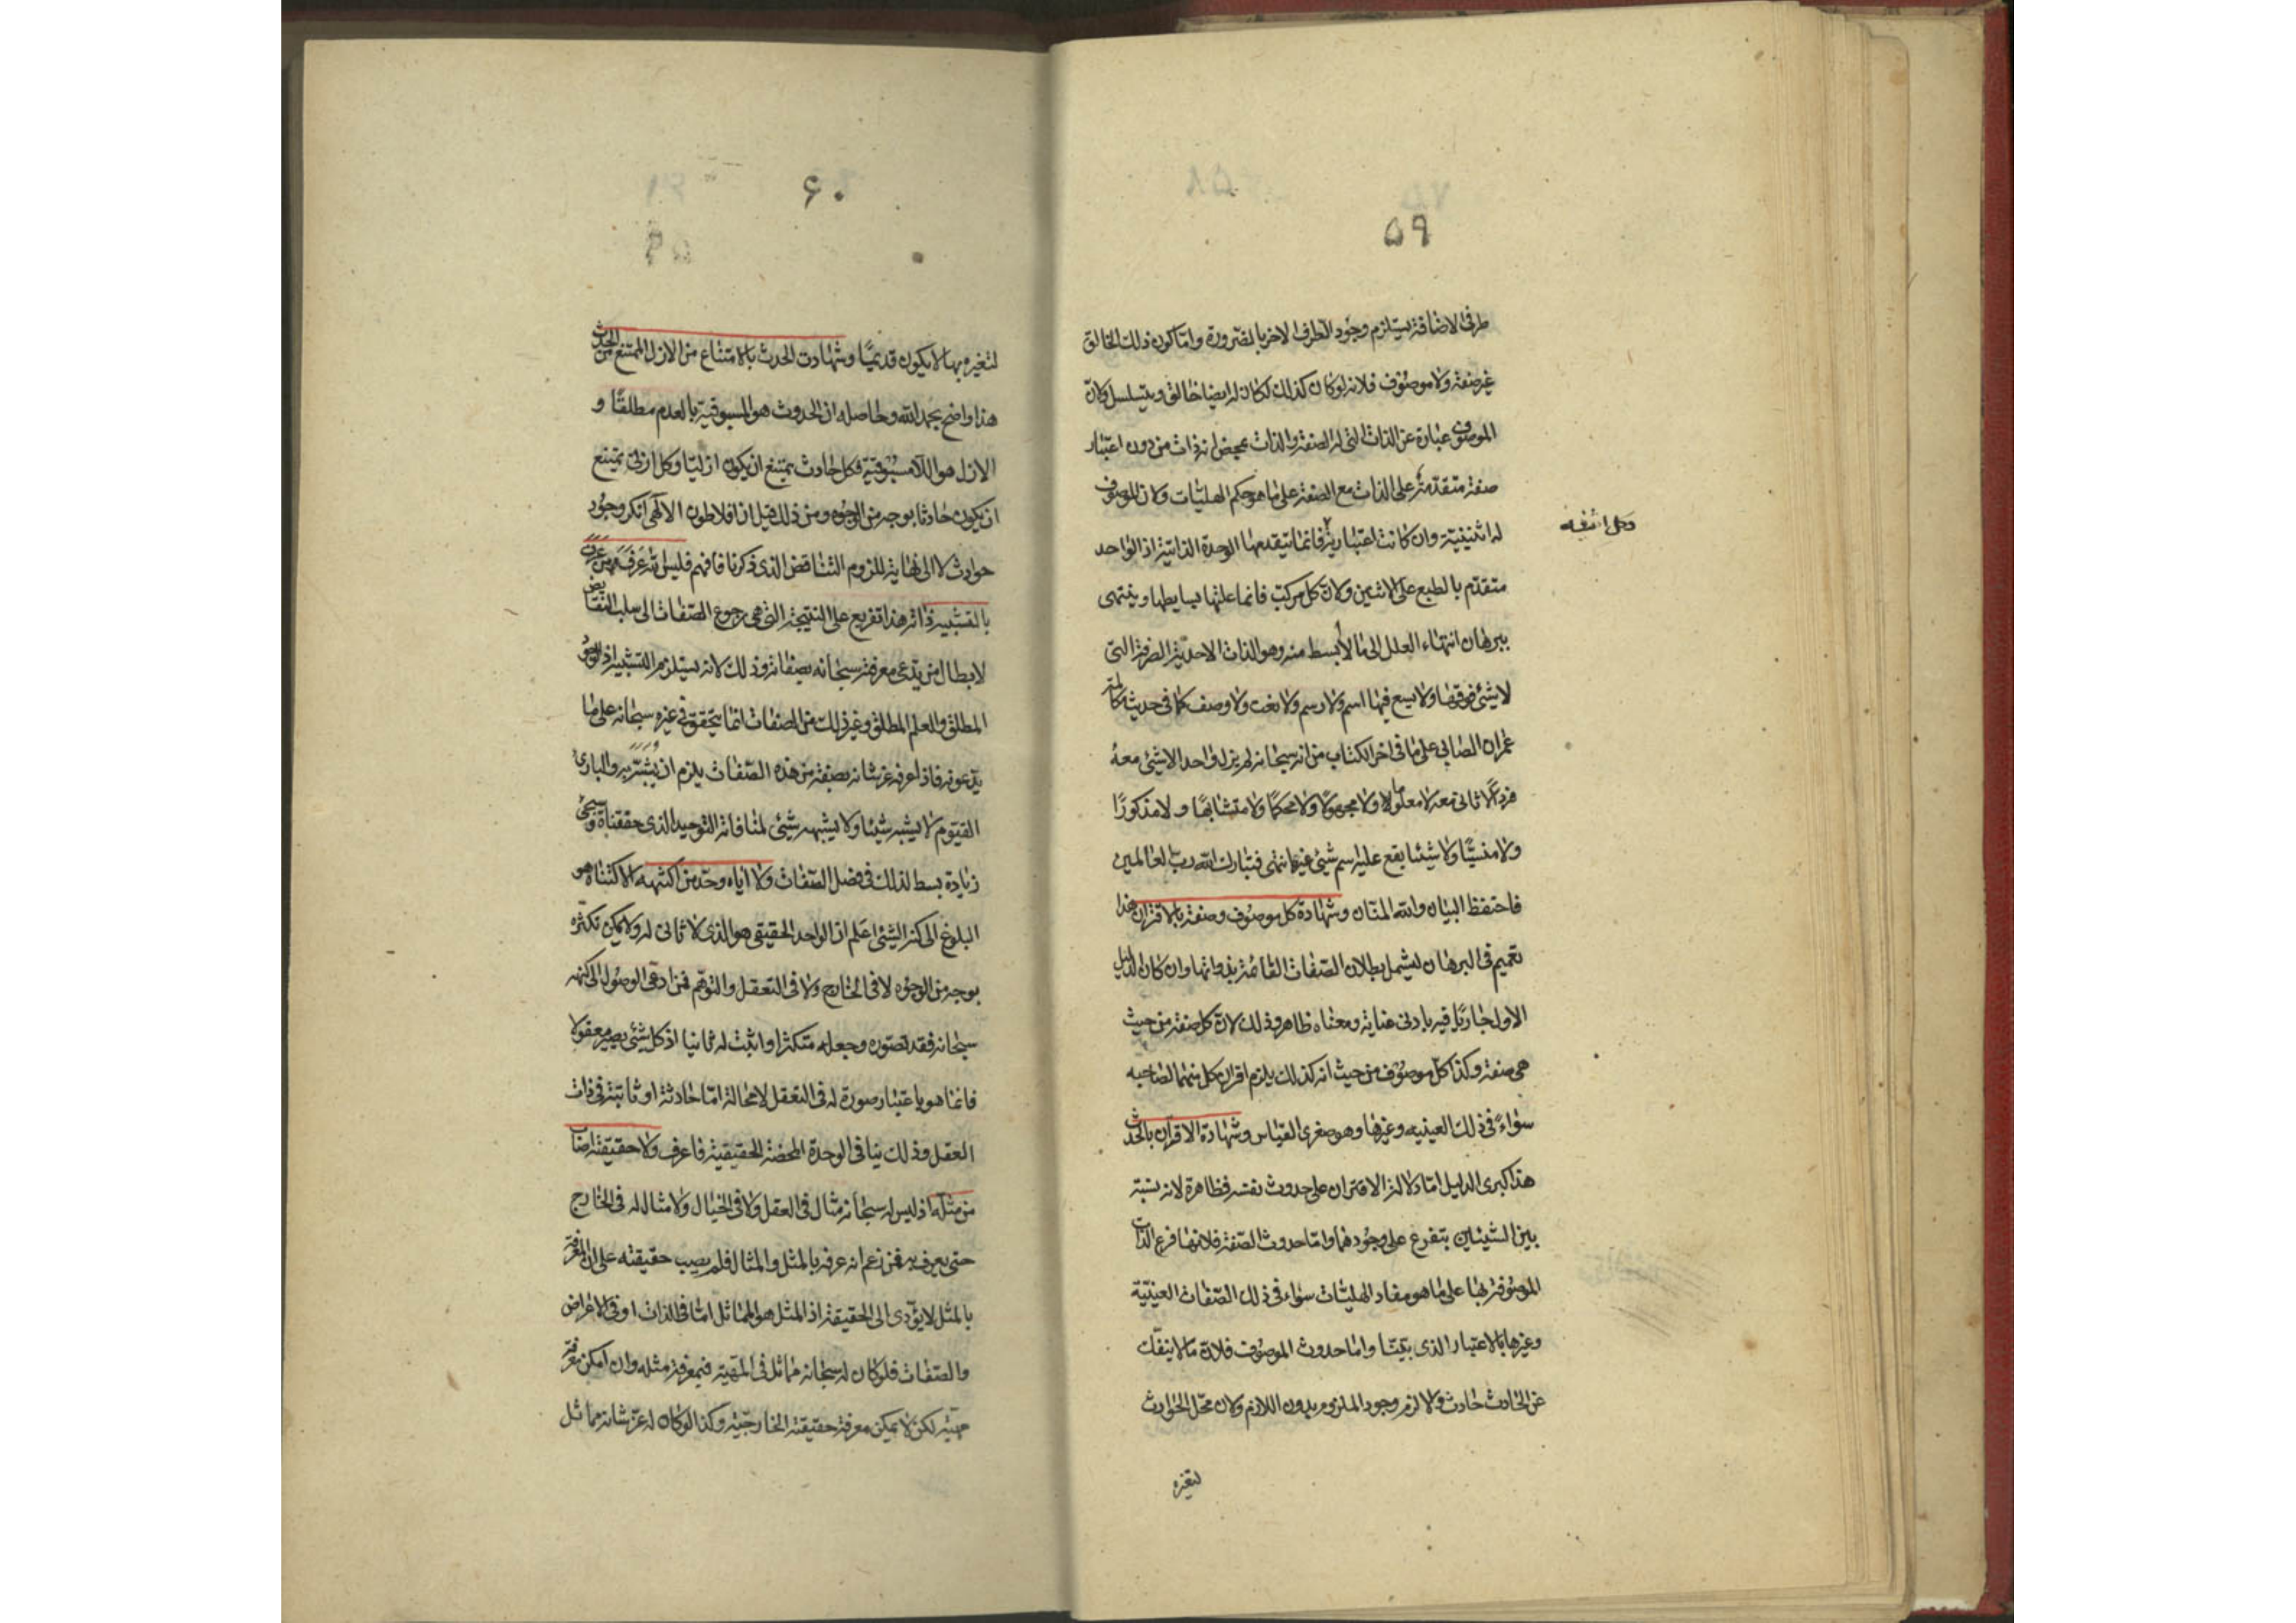 ۵۹
طرفی الاضافة یستلزم وجود الطرف الاخر بالضرورة واما کون ذلک الخالق
غیر صفة ولا موصوف فلانه لو کان کذلک لکان له ایضا خالق ویتسلسل ولان
الموصوف عبارة عن الذات التی له الصفة والذات بمحض انه ذات من دون اعتبار
صفة متقدمة علی الذات مع الصفة علی ما هو حکم الهلیات ولان للموصوف
له اثنینیة وان کانت اعتباریة فانما یتقدمها الوحدة الذاتیة اذ الواحد
وکل اثنینیه
متقدم بالطبع علی الاثنین ولان کل مرکب فانما علتها بسایطها وینتهی
ببرهان انتهاء العلل الی ما لا ابسط منه وهو الذات الاحدیة الصرفة التی
لا شیئ فوقها ولا یسع فیها اسم ولا رسم ولا نعت ولا وصف کما فی حدیث
عمران الصابی علی ما فی اخر الکتاب من انه سبحانه لم یزل واحدا لا شیئ معه
فردا لا ثانی معه لا معلوما ولا مجهولا ولا محکما ولا متشابها ولا مذکورا
ولا منسیا ولا شیئا یقع علیه اسم شیئ غیره انتهی فتبارک الله رب العالمین
فاحتفظ البیان والله المنان وشهادة کل موصوف وصفة بالاقتران هذا
تعمیم فی البرهان لیشمل بطلان الصفات القائمة بذواتها وان کان الدلیل
الاول جاریا فیه بادنی عنایة ومعناه ظاهر وذلک لان کل صفة من حیث
هی صفة وکذا کل موصوف من حیث انه کذلک یلزم اقتران کل منهما لصاحبه
سواء فی ذلک العینیه وغیرها وهو صغری القیاس وشهادة الاقتران بالحدث
هذا کبری الدلیل اما دلالة الاقتران علی حدوث نفسه فظاهرة لانه نسبة
بین الشیئین یتفرع علی وجودهما واما حدوث الصفة فلانها فرع الذات
الموصوفة بها علی ما هو مفاد الهلیات سواء فی ذلک الصفات العینیة
وغیرها بالاعتبار الذی بینا واما حدوث الموصوف فلان ما لا ینفک
عن الحادث حادث والا لزم وجود الملزوم بدون اللازم ولان محل الحوادث
لتغیره
۶۰
لتغیره بها لا یکون قدیما وشهادت الحدث بالامتناع من الازل الممتنع من الحدث
هذا واضح بحمد الله وحاصله ان الحدوث هو المسبوقیة بالعدم مطلقا و
الازل هو اللامسبوقیة فکل حادث یمتنع ان یکون ازلیا وکل ازلی یمتنع
ان یکون حادثا بوجه من الوجوه ومن ذلک قیل ان افلاطون الالهی انکر وجود
حوادث لا الی نهایة للزوم التناقض الذی ذکرنا فافهم فلیس الله عرف من عرف
بالتشبیه ذاته هذا تفریع علی النتیجة التی هی رجوع الصفات الی سلب النقایض
لابطال من یدعی معرفته سبحانه بصفاته وذلک لانه یستلزم التشبیه اذ الوجود
المطلق والعلم المطلق وغیر ذلک من الصفات انما یتحقق فی غیره سبحانه علی ما
یدعونه فاذا عرفه عز شانه بصفة من هذه الصفات یلزم ان یشبهه به والباری
القیوم لا یشبه شیئا ولا یشبهه شیئ لمنافاته التوحید الذی حققناه وسیجئ
زیادة بسط لذلک فی فضل الصفات ولا ایاه وحد من اکتنهه الاکتناه هو
البلوغ الی کنه الشیئ اعلم ان الواحد الحقیقی هو الذی لا ثانی له ولا یمکن تکثره
بوجه من الوجوه لا فی الخارج ولا فی التعقل والتوهم فمن ادعی الوصول الی کنهه
سبحانه فقد تصوره وجعله متکثرا واثبت له ثانیا اذ کل شیئ یصیر معقولا
فانما هو باعتبار صورة له فی التعقل لا محالة اما حادثة او ثابتة فی ذات
العقل وذلک ینافی الوحدة المحضة الحقیقیة فاعرف ولا حقیقته اصاب
من مثله اذ لیس له سبحانه مثال فی العقل ولا فی الخیال ولا مثال له فی الخارج
حتی یعرف به فمن زعم انه عرفه بالمثل والمثال فلم یصب حقیقته علی ان المعرفة
بالمثل لا یؤدی الی الحقیقة اذ المثل هو المماثل اما فی الذات او فی الاعراض
والصفات فلو کان له سبحانه مماثل فی المهیة فبمعرفة مثله وان امکن معرفة
مهیته لکن لا یمکن معرفة حقیقته الخارجیة وکذا لو کان له عز شانه مماثل